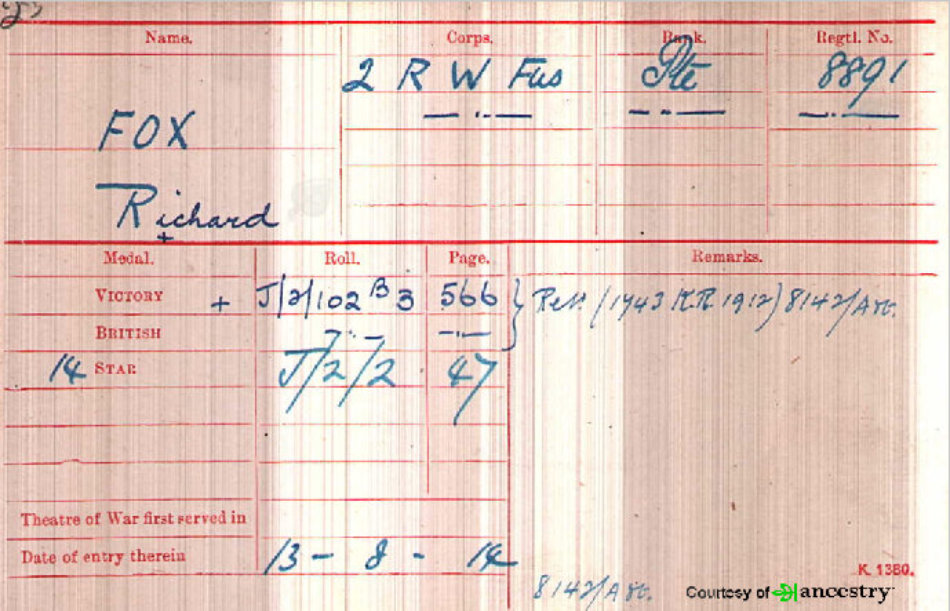 Name. Corps. Rank. Regtl. No.
2 R W Fus Pte 8891
FOX — " — — " — — " —
Richard
+
Medal. Roll. Page. Remarks.
VICTORY + J/2/102 B 3 566 } (1743 KR 1912) 8142/Adt.
BRITISH — " — — " —
14 STAR J/2/2 47
Theatre of War first served in
Date of entry therein 13 - 8 - 14
K 1380.
8142/Adt. Courtesy of ancestry